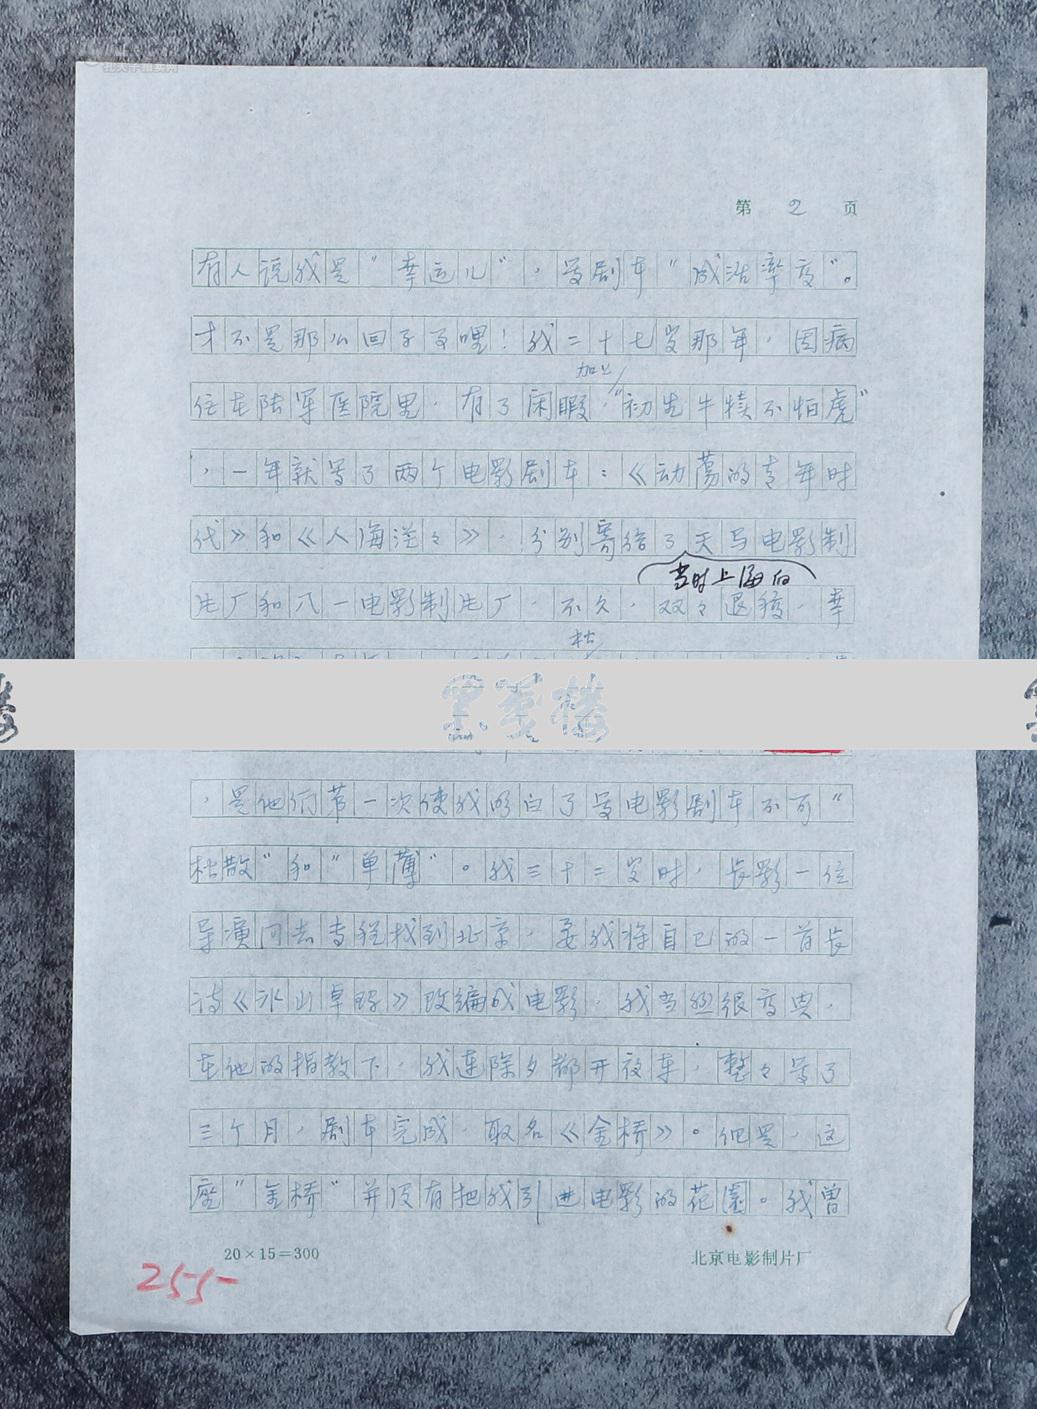 第 2 页
有人说我是“幸运儿”，写剧本“成活率高”。
才不是那么回子事哩！我二十七岁那年，因病
加上
住在陆军医院里，有了闲暇，“初生牛犊不怕虎”
，一年就写了两个电影剧本：《动荡的青年时
代》和《人海茫々》，分别寄给了天马电影制
当时上海的
片厂和八一电影制片厂，不久，双々退稿，幸
松
墨笺楼
，是他们第一次使我明白了写电影剧本不可“
松散”和“单薄”。我三十二岁时，长影一位
导演同志专程找到北京，要我将自己的一首长
诗《冰山草》改编成电影，我当然很高兴，
在他的指教下，我连除夕都开夜车，整々写了
三个月，剧本完成，取名《金桥》。但是，这
座“金桥”并没有把我引进电影的花园。我曾
20×15=300
北京电影制片厂
255